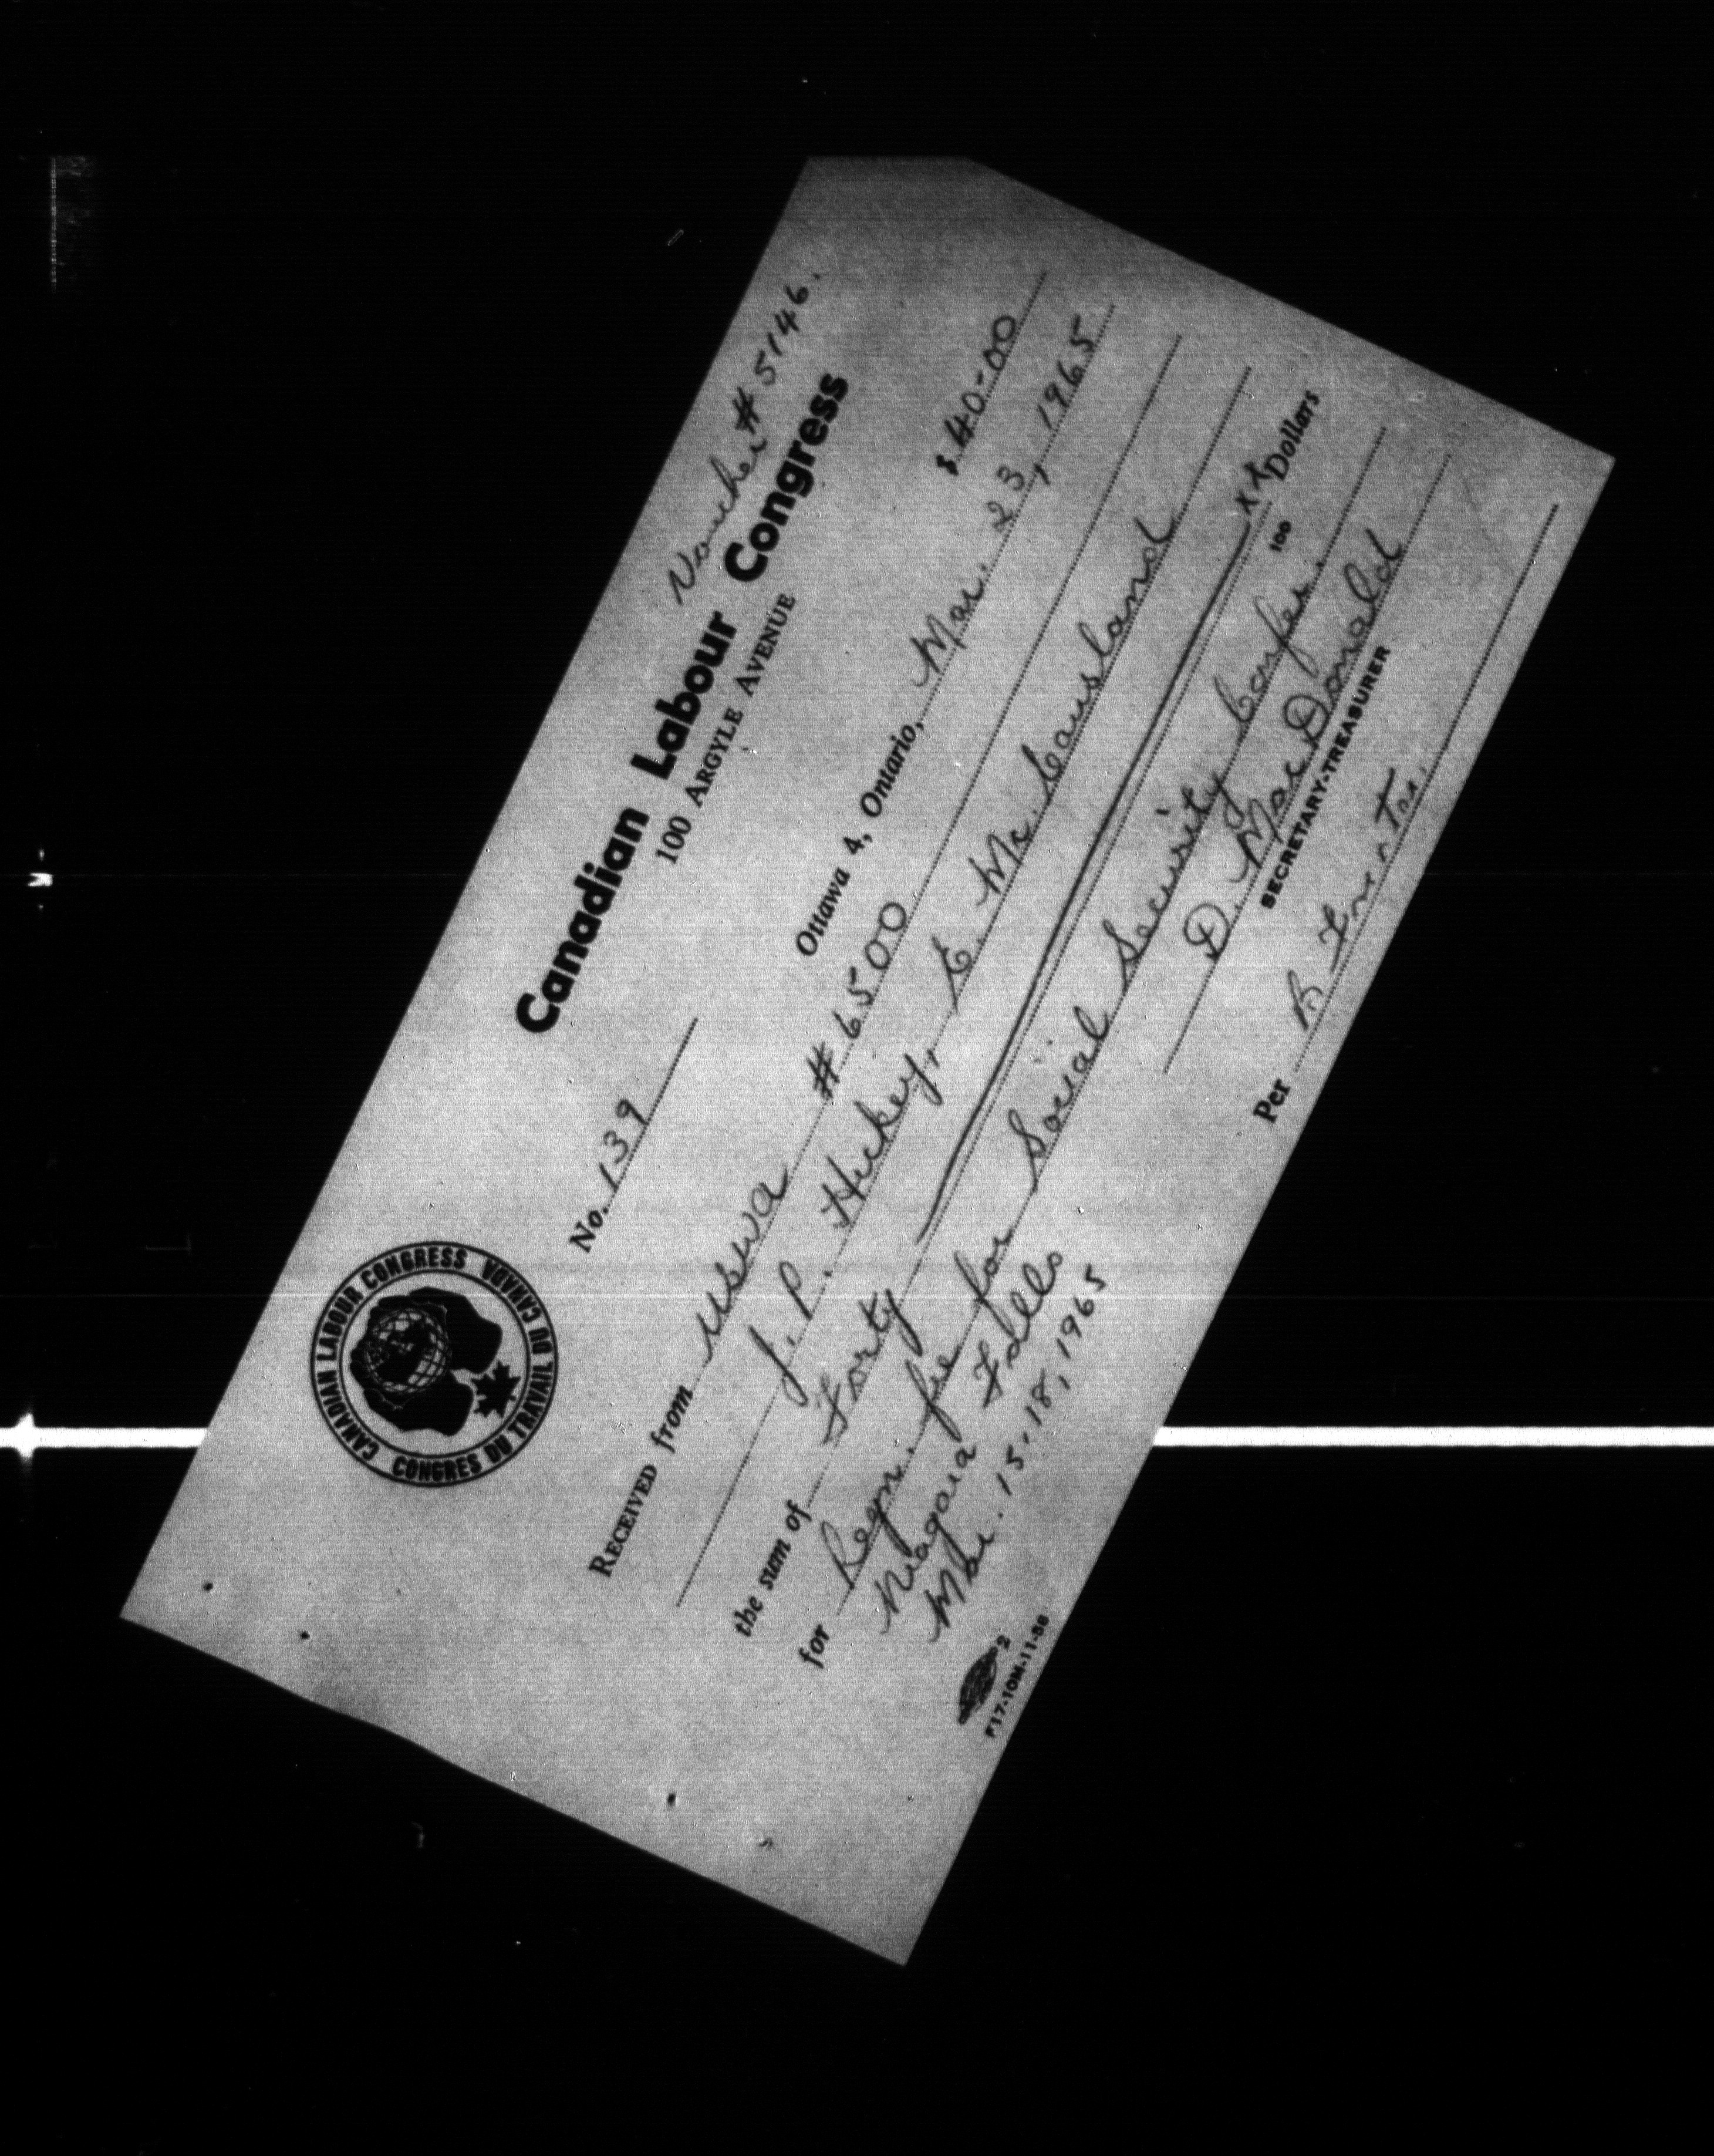 Voucher # 5146.
Canadian Labour Congress
100 ARGYLE AVENUE
CANADIAN LABOUR CONGRESS
CONGRES DU TRAVAIL DU CANADA
No. 139
$40-00
Ottawa 4, Ontario, Mar. 23, 1965
RECEIVED from USWA # 6500
J. P. Hickey, E. Mc Causland
the sum of Forty XX/100 Dollars
for Regn. fee for Social Security Confer.
Niagara Falls
Mar. 15-18, 1965
D. MacDonald
SECRETARY-TREASURER
Per
2
F17-10M-11-58